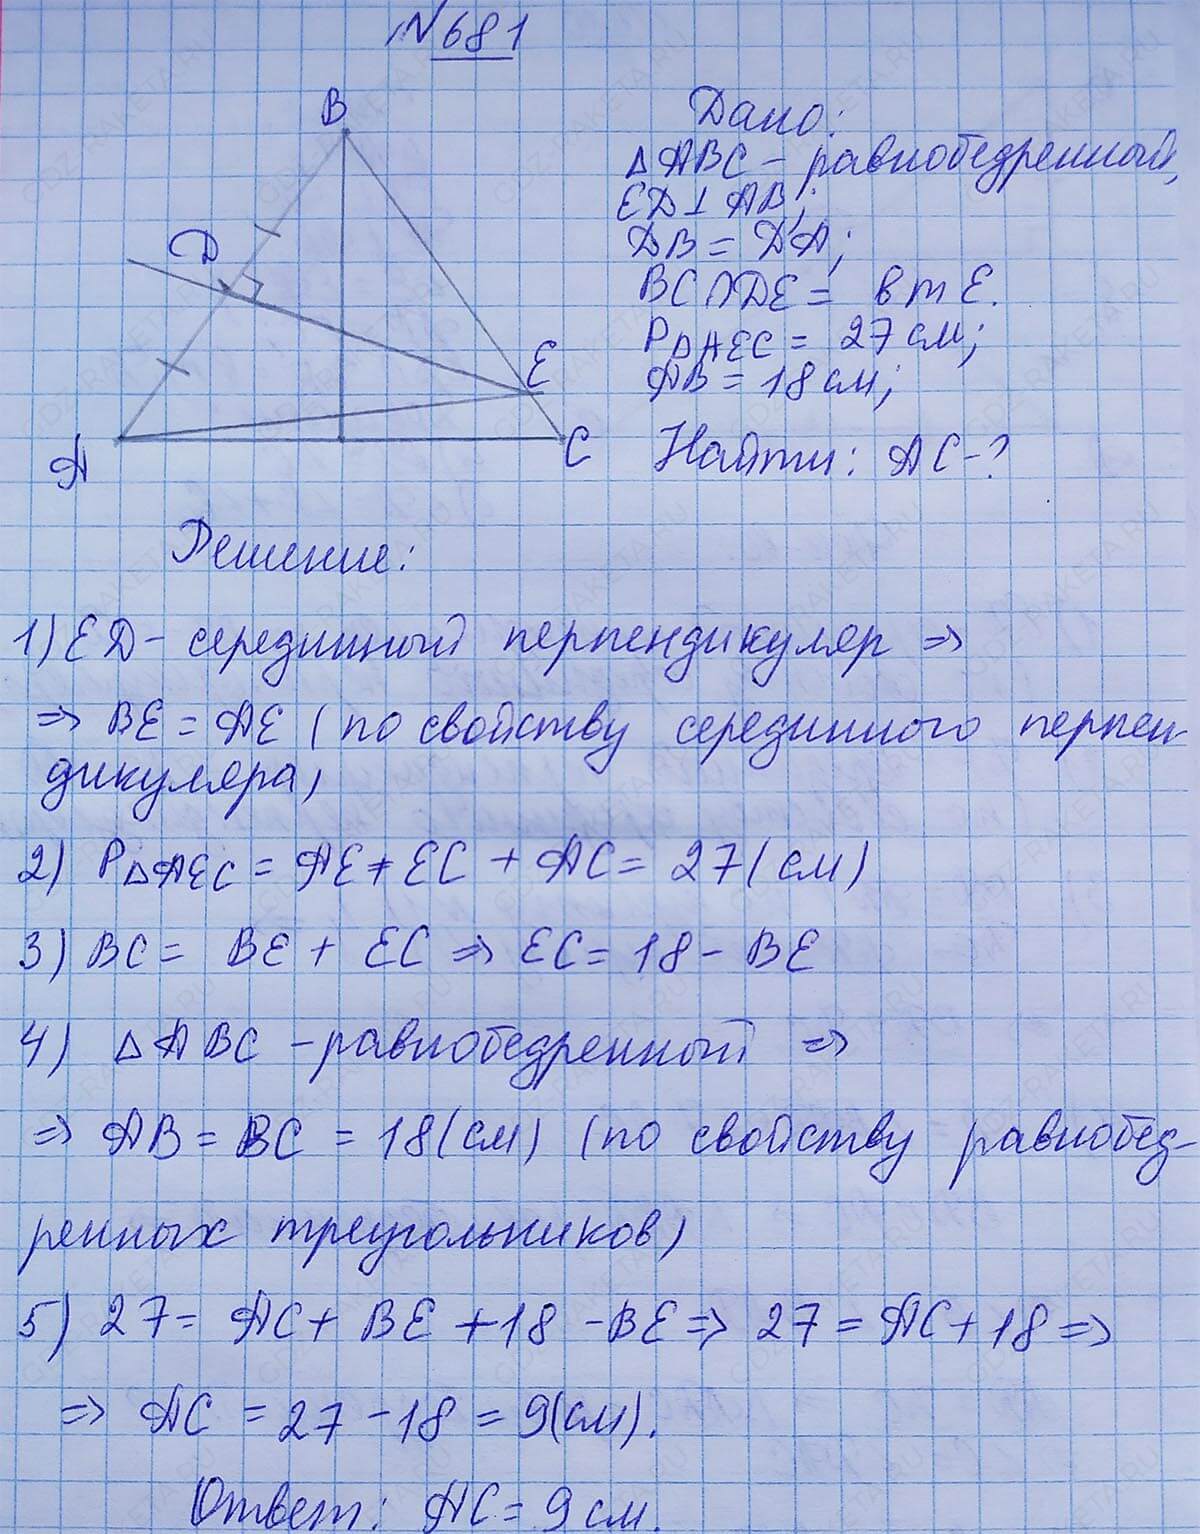 №681
B
D
E
A
C
Дано:
△ABC – равнобедренный,
ED⊥AB;
DB = DA;
BC∩DE = в т E.
P△AEC = 27 см;
AB = 18 см;
Найти: AC-?
Решение:
1) ED – серединный перпендикуляр ⇒
⇒ BE = AE (по свойству серединного перпен-
дикуляра)
2) P△AEC = AE + EC + AC = 27 (см)
3) BC = BE + EC ⇒ EC = 18 - BE
4) △ABC – равнобедренный ⇒
⇒ AB = BC = 18 (см) (по свойству равнобед-
ренных треугольников)
5) 27 = AC + BE + 18 - BE ⇒ 27 = AC + 18 ⇒
⇒ AC = 27 - 18 = 9(см).
Ответ: AC = 9 см.